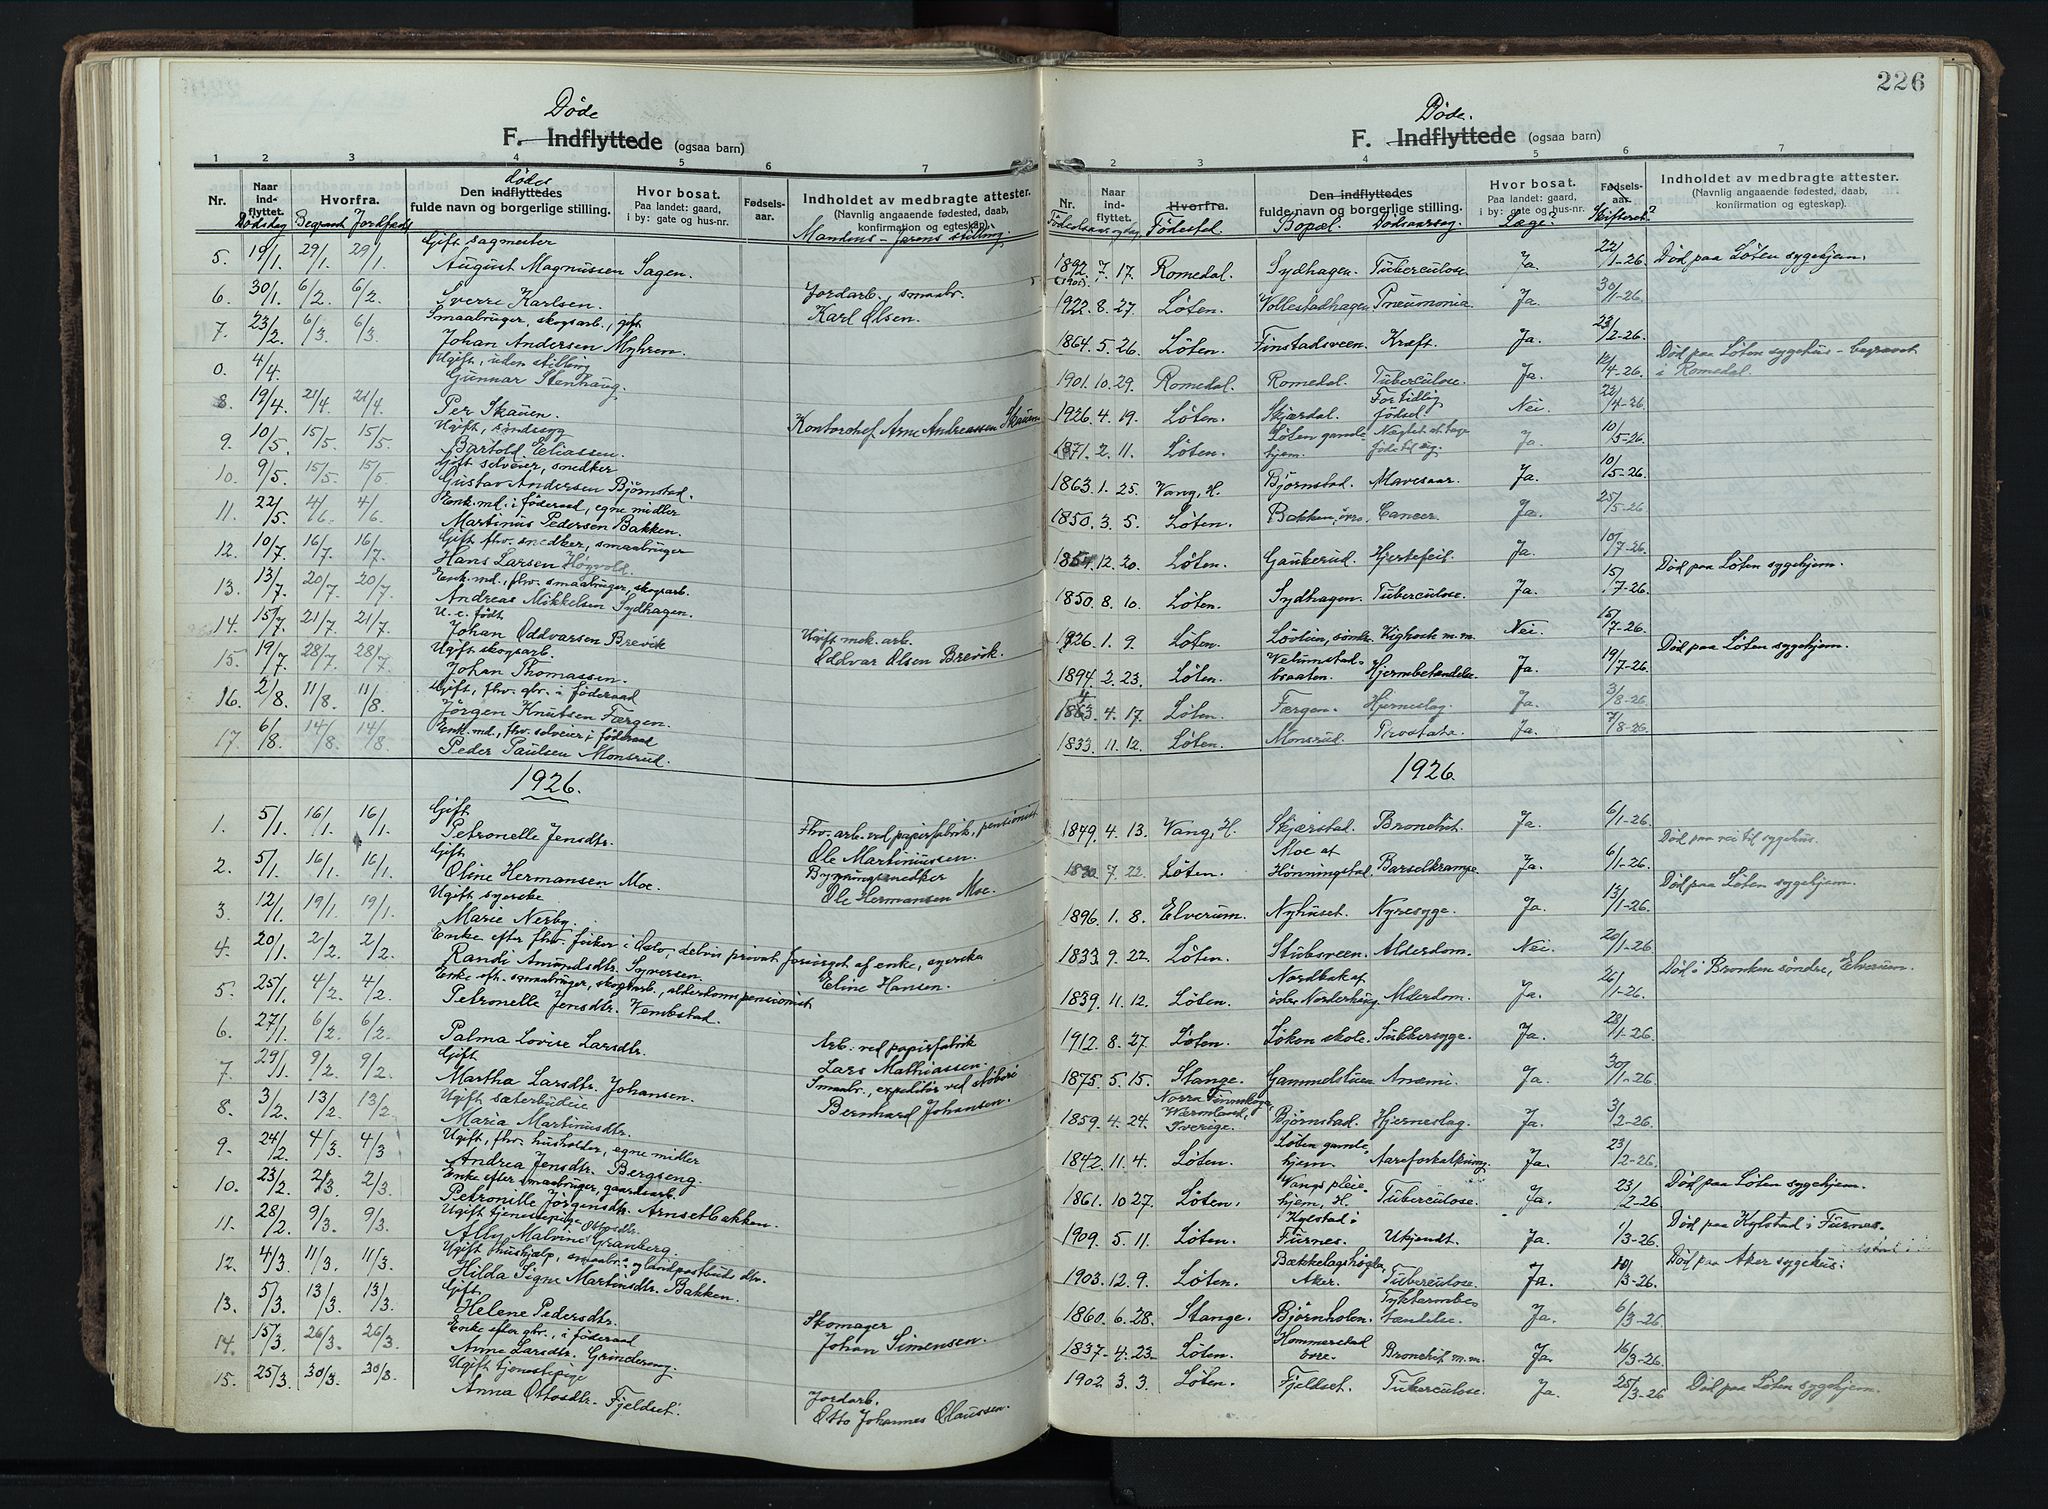 Døde
F. Indflyttede (ogsaa barn)
1 2 3 4 5 6 7
Nr. Naar indflyttet. Hvorfra. Den indflyttedes fulde navn og borgerlige stilling. Hvor bosat. Paa landet: gaard, i by: gate og hus-nr. Fødselsaar. Indholdet av medbragte attester. (Navnlig angaaende fødested, daab, konfirmation og egteskap).
dødes
Dødsdag Begravet Jordfæstet Mandens - farens stilling.
Gift sagmester
5. 19/1. 29/1. 29/1. August Magnussen Sagen.
6. 30/1. 6/2. 6/2. Sverre Karlsen. Jordarb., smaabr.
Karl Olsen.
Smaabruger, skogsarb., gift
7. 23/2. 6/3. 6/3. Johan Andersen Myhren.
Ugift, uden stilling
0. 4/4. Gunnar Stenhaug.
8. 19/4. 21/4. 21/4. Per Skauen. Kontorchef Arne Andreassen Skauen
Ugift, sindssyg
9. 10/5. 15/5. 15/5. Bartold Eliassen.
Gift selveier, snedker
10. 9/5. 15/5. 15/5. Gustav Andersen Bjørnstad.
Enk.md. i føderaad, egne midler
11. 22/5. 4/6. 4/6. Martinus Pedersen Bakken.
Gift fhv. snedker, smaabruger
12. 10/7. 16/7. 16/7. Hans Larsen Høgvold.
Enk.md., fhv. smaabruger, skogsarb.
13. 13/7. 20/7. 20/7. Andreas Mikkelsen Sydhagen.
U. e. født
14. 15/7. 21/7. 21/7. Johan Oddvarsen Brevik Ugift mek. arb.
Oddvar Olsen Brevik.
Ugift skogsarb.
15. 19/7. 28/7. 28/7. Johan Thomassen.
Gift, fhv. gbr. i føderaad
16. 2/8. 11/8. 11/8. Jørgen Knutsen Færgen.
Enk.md, fhv. selveier i føderaad
17. 6/8. 14/8. 14/8. Peder Paulsen Monsrud.
1926.
Gift
1. 5/1. 16/1. 16/1. Petronelle Jensdtr. Fhv. arb. ved papirfabrik, pensionist
Ole Martiniussen.
Gift
2. 5/1. 16/1. 16/1. Oline Hermansen Moe. Bygningssnedker
Ole Hermansen Moe.
Ugift syerske
3. 12/1. 19/1. 19/1. Marie Nerby.
Enke efter fhv. fisker i Oslo, delvis privat forsørget af enke, syerske
4. 20/1. 2/2. 2/2. Randi Amundsdtr. Syversen. Eline Hansen.
Enke eft. smaabruger, skogsarb, alderdomspensionist
5. 25/1. 4/2. 4/2. Petronelle Jensdtr. Vembstad.
6. 27/1. 6/2. 6/2. Palma Lovise Larsdtr. Arb. ved papirfabrik
Lars Mathiassen.
Gift
7. 29/1. 9/2. 9/2. Martha Larsdtr. Johansen. Smaabr., expeditør ved støberi
Bernhard Johansen.
Ugift sæterbudeie
8. 3/2. 13/2. 13/2. Maria Martinusdtr.
Ugift, fhv. husholder, egne midler
9. 24/2. 4/3. 4/3. Andrea Jensdtr. Bergseng.
Enke efter smaabruger, gaardsarb.
10. 23/2. 2/3. 2/3. Petronille Jørgensdtr. Arnsetbakken.
Ugift tjenestepige
11. 28/2. 9/3. 9/3. Ally Malvine Ottosdtr. Granberg.
Ugift hushjælp, smaabr.- og landpostbuds dtr.
12. 4/3. 11/3. 11/3. Hilda Signe Martinsdtr. Bakken.
Gift
13. 5/3. 13/3. 13/3. Helene Pedersdtr. Skomager
Johan Simensen.
Enke efter gbr., i føderaad
14. 15/3. 26/3. 26/3. Anne Larsdtr. Grindereng.
Ugift tjenestepige
15. 25/3. 30/3. 30/3. Anna Ottosdtr. Fjeldset. Jordarb.
Otto Johannes Olaussen.
226
Døde.
F. Indflyttede (ogsaa barn)
2 3 4 5 6 7
Nr. Naar indflyttet. Hvorfra. Den indflyttedes fulde navn og borgerlige stilling. Hvor bosat. Paa landet: gaard, i by: gate og hus-nr. Fødselsaar. Indholdet av medbragte attester. (Navnlig angaaende fødested, daab, konfirmation og egteskap).
Fødselsaar og dag Fødested. Bopæl. Dødsaarsag. Læge? Skifteret?
1892. 7. 17. Romedal. Sydhagen. Tuberculose. Ja. 22/1-26. Død paa Løten sygehjem.
1922. 8. 27. Løten. Vollestadhagen Pneumonia. Ja. 30/1-26.
1864. 5. 26. Løten. Finstadsveen. Kræft. Ja. 23/2-26.
1901. 10. 29. Romedal. Romedal. Tuberculose. Ja. 12/4-26. Død paa Løten sygehus - begravet i Romedal.
1926. 4. 19. Løten. Skjærdal. Fortidlig fødsel. Nei. 22/4-26.
1871. 2. 11. Løten. Løten gamlehjem. Nægtet at tage føde til sig. Ja. 10/5-26.
1863. 1. 25. Vang, H. Bjørnstad. Mavesaar. Ja. 10/5-26.
1850. 3. 5. Løten. Bakken, øvre. Cancer. Ja. 25/5-26.
1854. 12. 20. Løten. Gaukerud. Hjertefeil. Ja. 10/7-26. Død paa Løten sygehjem.
1850. 8. 10. Løten. Sydhagen. Tuberculose. Ja. 15/7-26.
1926. 1. 9. Løten. Løvlien, søndre. Kighoste m.m. Nei. 15/7-26. Død paa Løten sygehjem.
1894. 2. 23. Løten. Hjernebetændelse Ja. 19/7-26.
4. 17. Løten. Færgen. Hjerneslag. Ja. 3/8-26.
1833. 11. 12. Løten. Monsrud. Prostata. Ja. 7/8-26.
1926.
1849. 4. 13. Vang, H. Skjærstad. Bronchit. Ja. 6/1-26. Død paa vei til sygehus.
7. 22. Løten. Moe af Hønningstad. Barselkrampe. Ja. 6/1-26. Død paa Løten sygehjem.
1896. 1. 8. Elverum. Nyhuset. Nyresyge. Ja. 13/1-26.
1833. 9. 22. Løten. Stubsveen. Alderdom. Nei. 20/1-26. Død i Bronken søndre, Elverum.
1839. 11. 12. Løten. Nordbak af østre Norderhaug Alderdom. Ja. 26/1-26.
1912. 8. 27. Løten. Løken skole. Sukkersyge. Ja. 28/1-26.
1875. 5. 15. Stange. Gammelstuen Anæmi. Ja. 30/1-26.
1859. 4. 24. Norra Finnskoga, Wärmland, Sverige. Bjørnstad. Hjerneslag. Ja. 3/2-26.
1842. 11. 4. Løten. Løten gamlehjem. Aareforkalkning. Ja. 23/2-26.
1861. 10. 27. Løten. Vangs pleiehjem, H. Tuberculose. Ja. 23/2-26. Død paa Løten sygehjem.
1909. 5. 11. Løten. Kylstad i Furnes. Ukjendt. Ja. 1/3-26. Død paa Kylstad i Furnes.
1903. 12. 9. Løten. Bækkelagshøgda, Aker. Tuberculose. Ja. 10/3-26. Død paa Aker sygehus.
1860. 6. 28. Stange. Bjørnholen. Tyktarmbetændelse. Ja. 6/3-26.
1837. 4. 23. Løten. Hommerstad øvre. Bronchit m.m. Ja. 16/3-26.
1902. 3. 3. Løten. Fjeldset. Tuberculose. Ja. 25/3-26. Død paa Løten sygehjem.